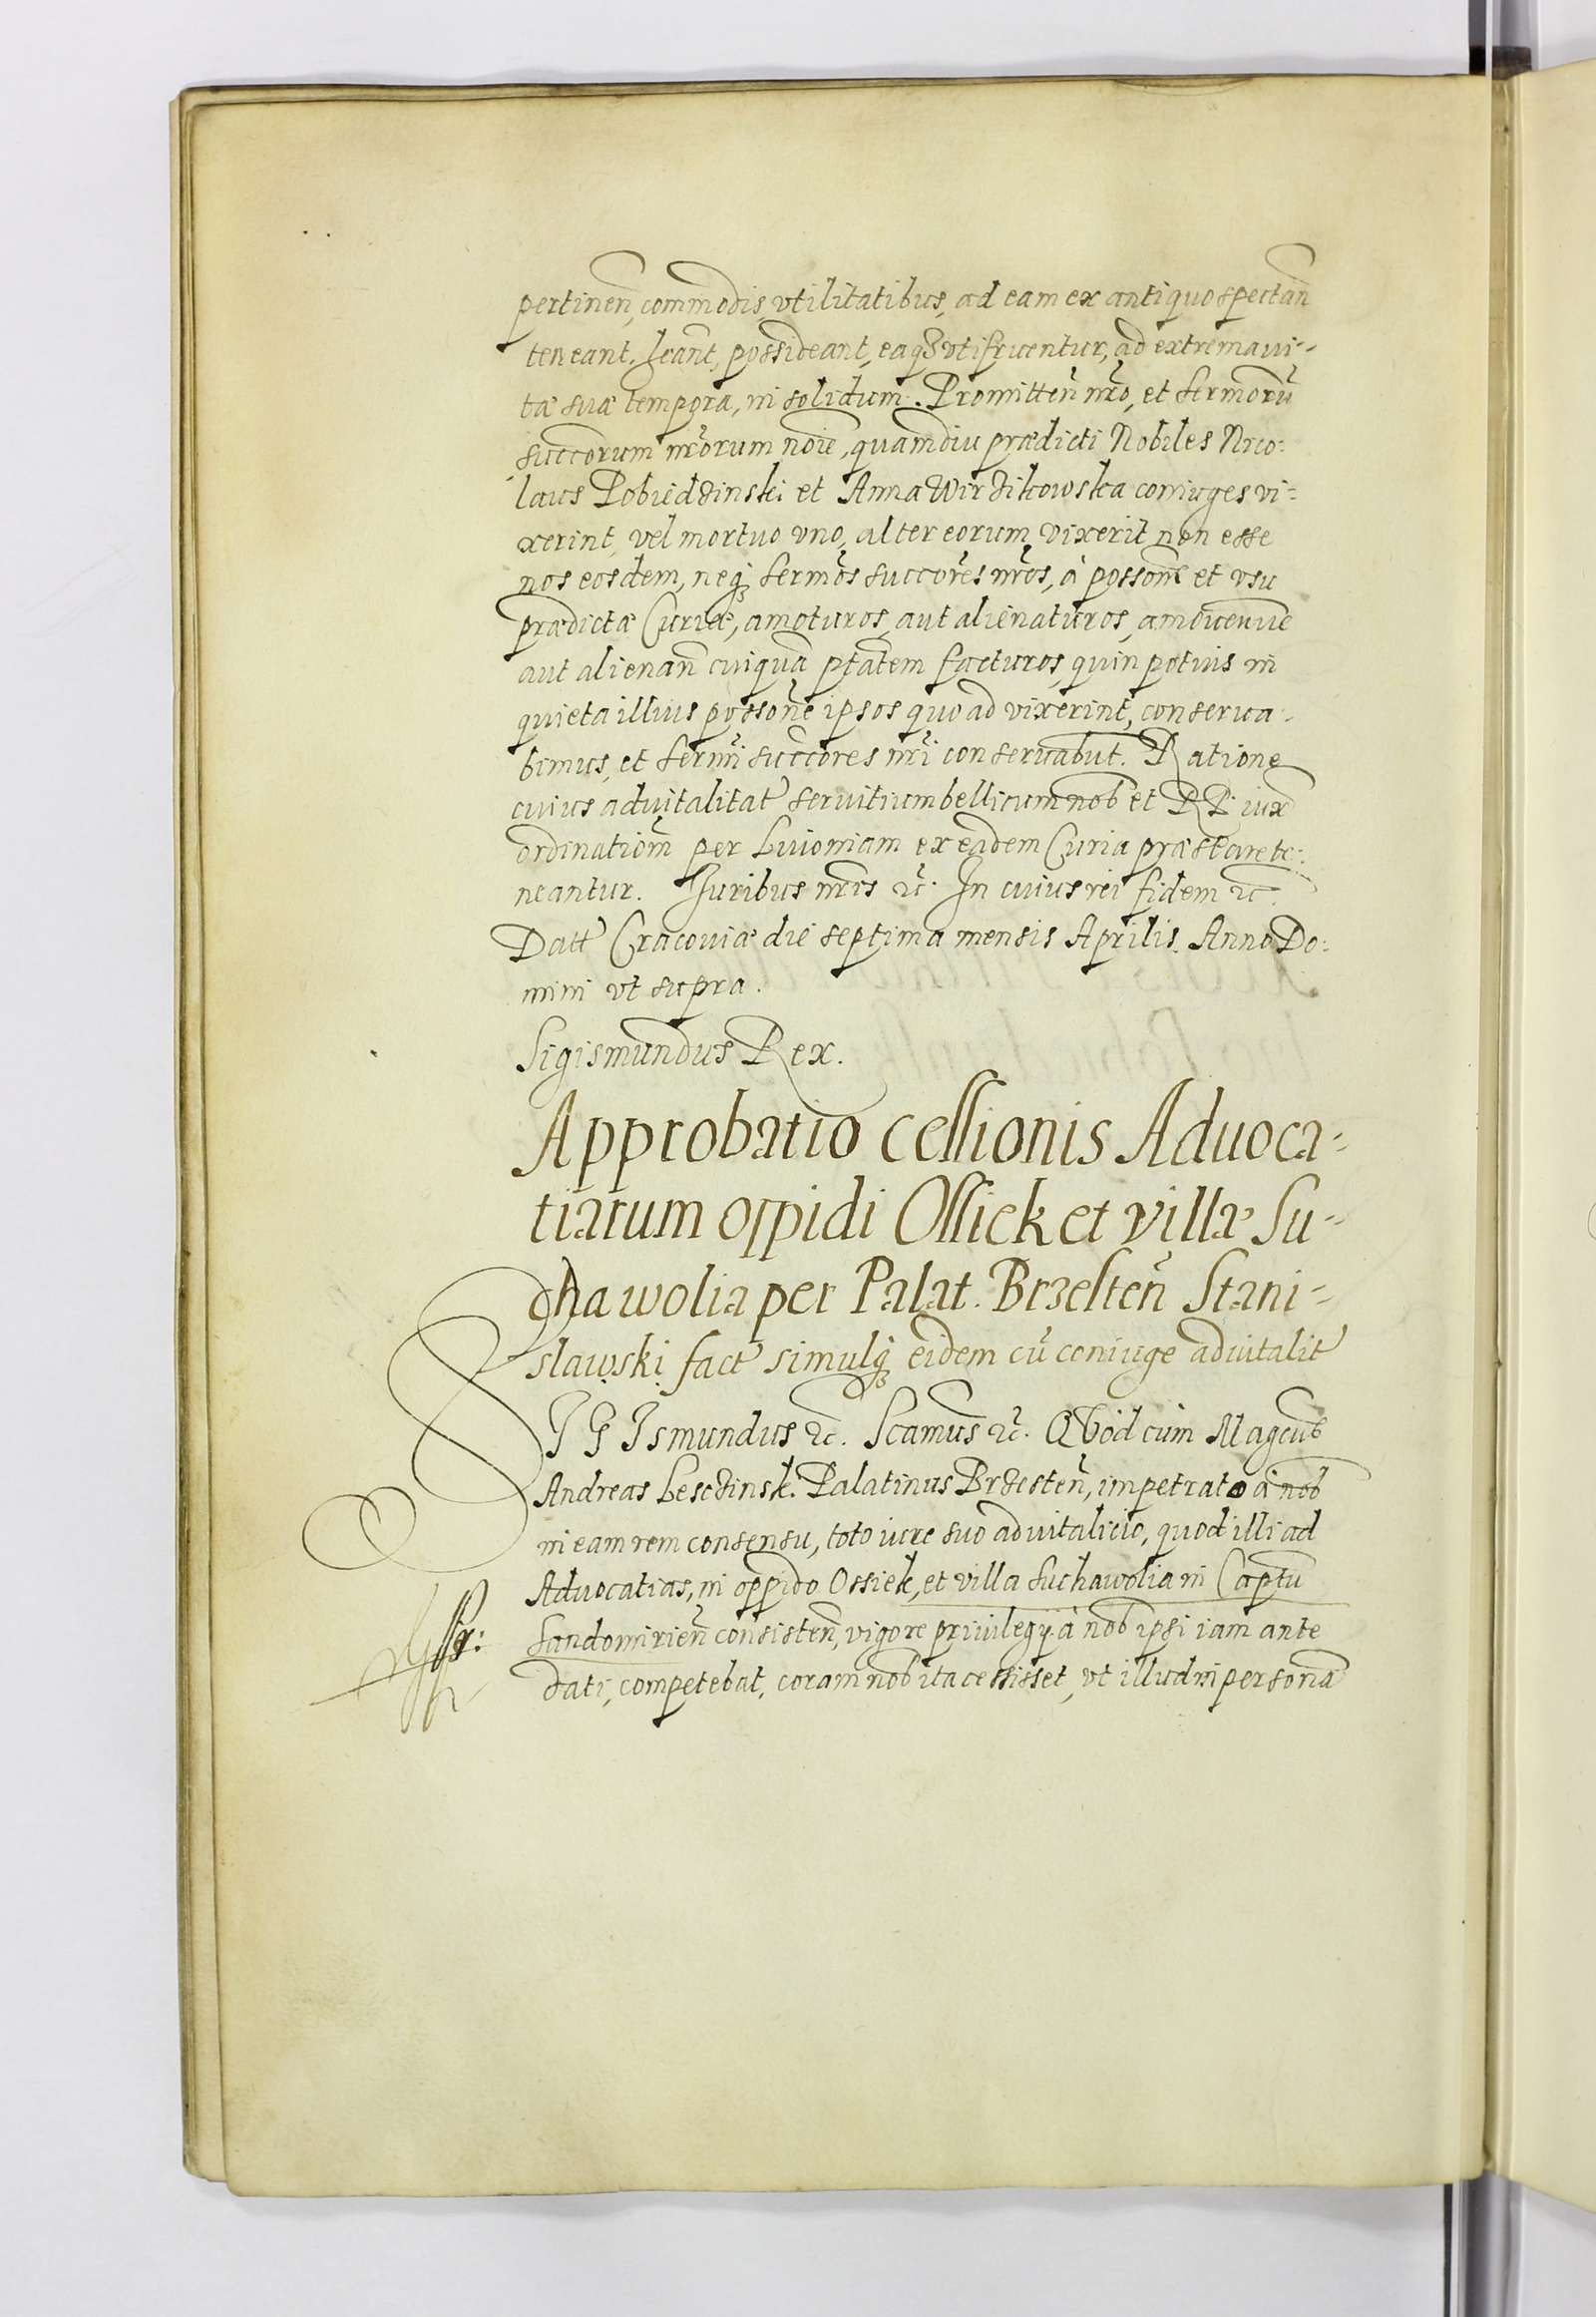 pertineñ, commodis, vtilitatibus, ad eam ex antiquo spectañ
teneant, heant, possideant, eaq3 vtifruentur, ad extrema vi-
tæ suæ tempora, in solidum. Promitteñ nr̃o, et sermorũ
succorum nr̃orum noi͂e, quamdiu prædicti Nobiles Nico:
laus Pobiedzinski et Anna Wirzikowska coniuges vi=
xerint, vel mortuo vno, alter eorum vixerit non esse
nos eosdem, neq3 sermõs succor̃es nr̃os, à possone et vsu
prædictæ Curiæ, amoturos, aut alienaturos, amouenve
aut alienan̄ cuiquã ptãtem facturos, quin potius in
quieta illius possoñe ipsos quo ad vixerint, conserua-
bimus, et sermĩ succcores nr̃i conseruabut. Ratione
cuius aduitalitat̃ seruitium bellicum nob et RP. iux̃
ordinatiom̃ per Liuoniam ex eadem Curia præstare te:
neantur. Iuribus nr̃is ꝛc̃. In cuius rei fidem ꝛc̃.
Datt̃ Cracouiæ die septima mensis Aprilis. Anno Do:
mini vt supra.
Sigismundus Rex.
Approbatio cessionis Aduoca-
tiarum oppidi Ossiek et villæ Su-
cha wolia per Palat. Brzesteñ Stani-
slawski fact̃ simulq3 eidem cũ coniuge aduitalit̃
SIGIsmundus ꝛc̃. Scamus ꝛc̃. QVod cùm Magcus
Andreas Lesczinsk. Palatinus Brzesteñ, impetrato à nob
in eam rem consensu, toto iure suo aduitalicio, quod illi ad
Aduocatias, in oppido Ossiek, et villa Suchawolia in Captu
Sandomirieñ consisteñ, vigore priuilegÿ à nob ipsi iam ante
dati, competebat, coram nob ita cessisset, vt illud in personã